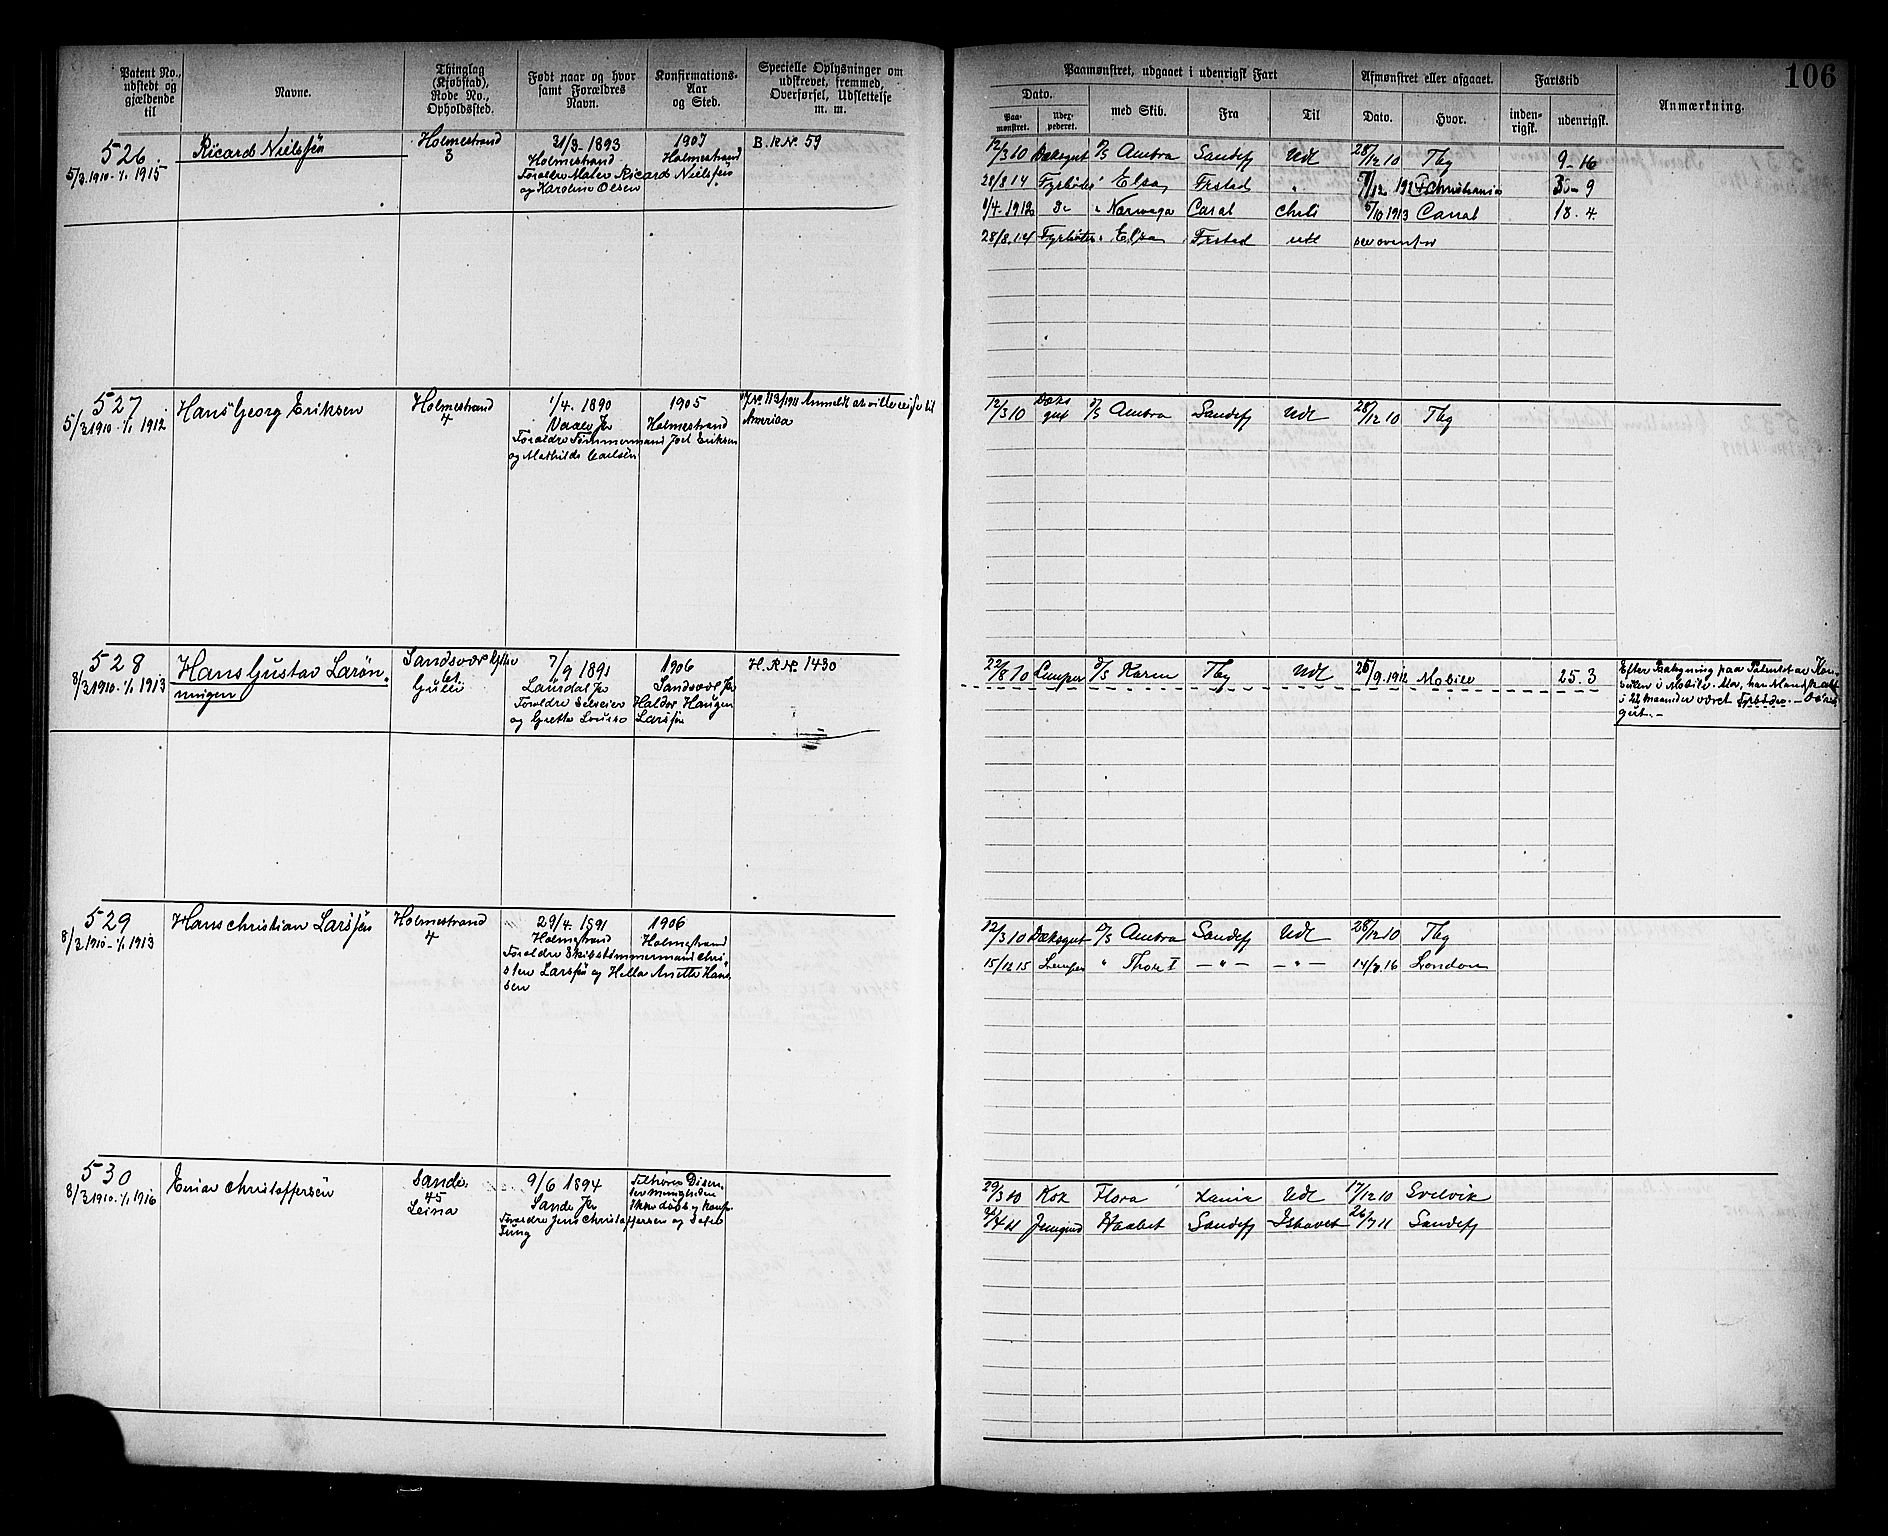 106
Patent No.,
udstedt og
gjældende
til
Navne.
Thinglag
(Kjøbstad),
Rode No.,
Opholdssted.
Født naar og hvor
samt Forældres
Navn.
Konfirmations-
Aar
og Sted.
Specielle Oplysninger om
udskrevet, fremmed,
Overførsel, Udslettelse
m. m.
Paamønstret, udgaaet i udenrigsk Fart
Dato.
Paa-
mønstret.
med Skib.
Fra
Til
Afmønstret eller afgaaet.
Dato.
Hvor.
Fartstid
inden-
rigsk.
udenrigsk.
Anmærkning.
526
5/3 1910 - 1/1 1915
Ricard Nielsen
Holmestrand
3
31/3 - 1893
Holmestrand
Forældre Maler Ricard Nielsen
og Karoline Olsen
1907
Holmestrand
B. R. No. 59
12/3 10 Dæksgut D/S Ambra Sandefj Udl 28/12 10 Tbg 9 - 16
28/8 14 Fyrbøder " Elsa Frstad " Christiania 9
1/4 - 1912 Do " Norvega Canal Chili 5/10 1913 Canal 18 . 4
28/8 . 14 Fyrbøder " Elsa Frstad udl see ovenfor
527
5/3 1910 - 1/1 1912
Hans Georg Eriksen
Holmestrand
4
1/4 . 1890
Vaale Jb
Forældre Tømmermand Joel Eriksen
og Mathilde Carlsen
1905
Holmestrand
J. No 113/1911 Anmeldt at ville reise til
Amerika
12/3 10 Dæksgut D/S Ambra Sandefj Udl 28/12 10 Tbg
528
8/3 1910 - 1/1 1913
Hans Gustav Larsen
Sandsvær
7/9 1891
Laurdal Jb
og Grethe Lovise
1906
Sandsvær Jb
Haldor Haugen
Larsen
H. R. No. 1430
22/8 10 Lemper D/S Karin Tbg Udl 25/9 . 1912 Mobile 25 . 3
Efter Paategning paa Patentet av Kon-
sulen i Mobile. Ala, har Mandskabet
i 22 maaneder været Fyrbøder. -
529
8/3 1910 - 1/1 1913
Hans Christian Larsen
Holmestrand
4
29/4 . 1891
Holmestrand
Forældre Skibstømmermand Chri-
sten Larsen og Hella Anette Han-
sen
1906
Holmestrand
12/3 10 Dæksgut D/S Ambra Sandefj Udl 28/12 10 Tbg
15/12 15 Lemper " Thor I - " - - " - 14/7 16 London
530
8/3 1910 - 1/1 1916
Einar Christoffersen
Sande
45
Leina
9/6 1894
Sande Jb
Forældre Jens Christoffersen og
Tilhører Disen-
termenigheden
ikke døbt og konf.
29/3 10 Kok Flora Udl 17/12 10 Svelvik
4/4 11 Jungmd Haabet Sandefj Ishavet 26/7 11 Sandefj